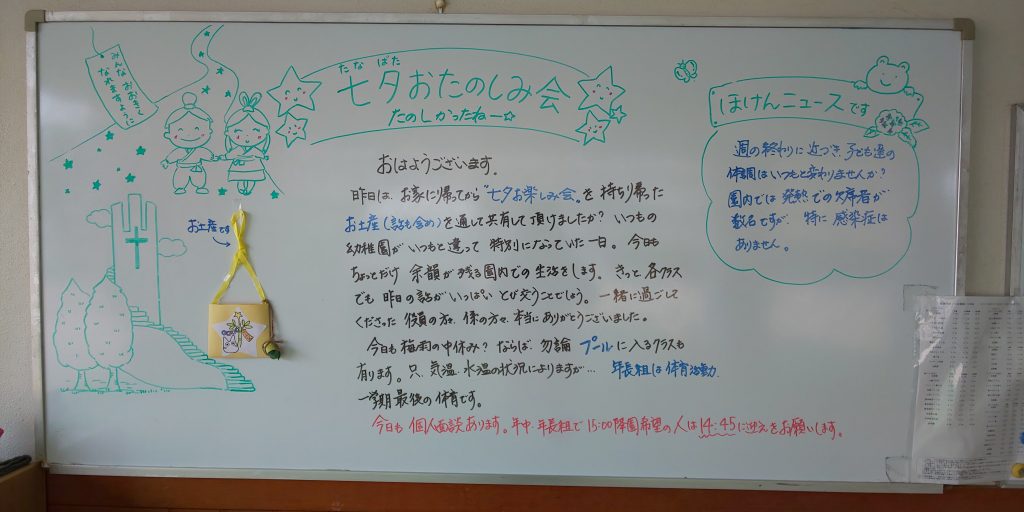 みんなおおきく
なれますように
たなばた
七夕おたのしみ会
たのしかったねー☆
おはようございます。
昨日は、お家に帰ってから"七夕お楽しみ会"を持ち帰った
お土産(話も含め)を通して共有して頂けましたか？いつもの
幼稚園がいつもと違って特別になっていた一日。今日も
ちょっとだけ余韻が残る園内での生活をします。きっと各クラス
でも昨日の話がいっぱいとび交うことでしょう。一緒に過ごして
くださった役員の方々、係の方々、本当にありがとうございました。
今日も梅雨の中休み？ならば、勿論プールに入るクラスも
有ります。只、気温、水温の状況によりますが… 年長組は体育活動。
一学期最後の体育です。
今日も個人面談あります。年中・年長組で15:00降園希望の人は14:45に迎えをお願いします。
お土産です
ほけんニュースです
週の終わりに近づき、子ども達の
体調はいつもと変わりませんか？
園内では発熱での欠席者が
数名ですが、特に感染症は
ありません。